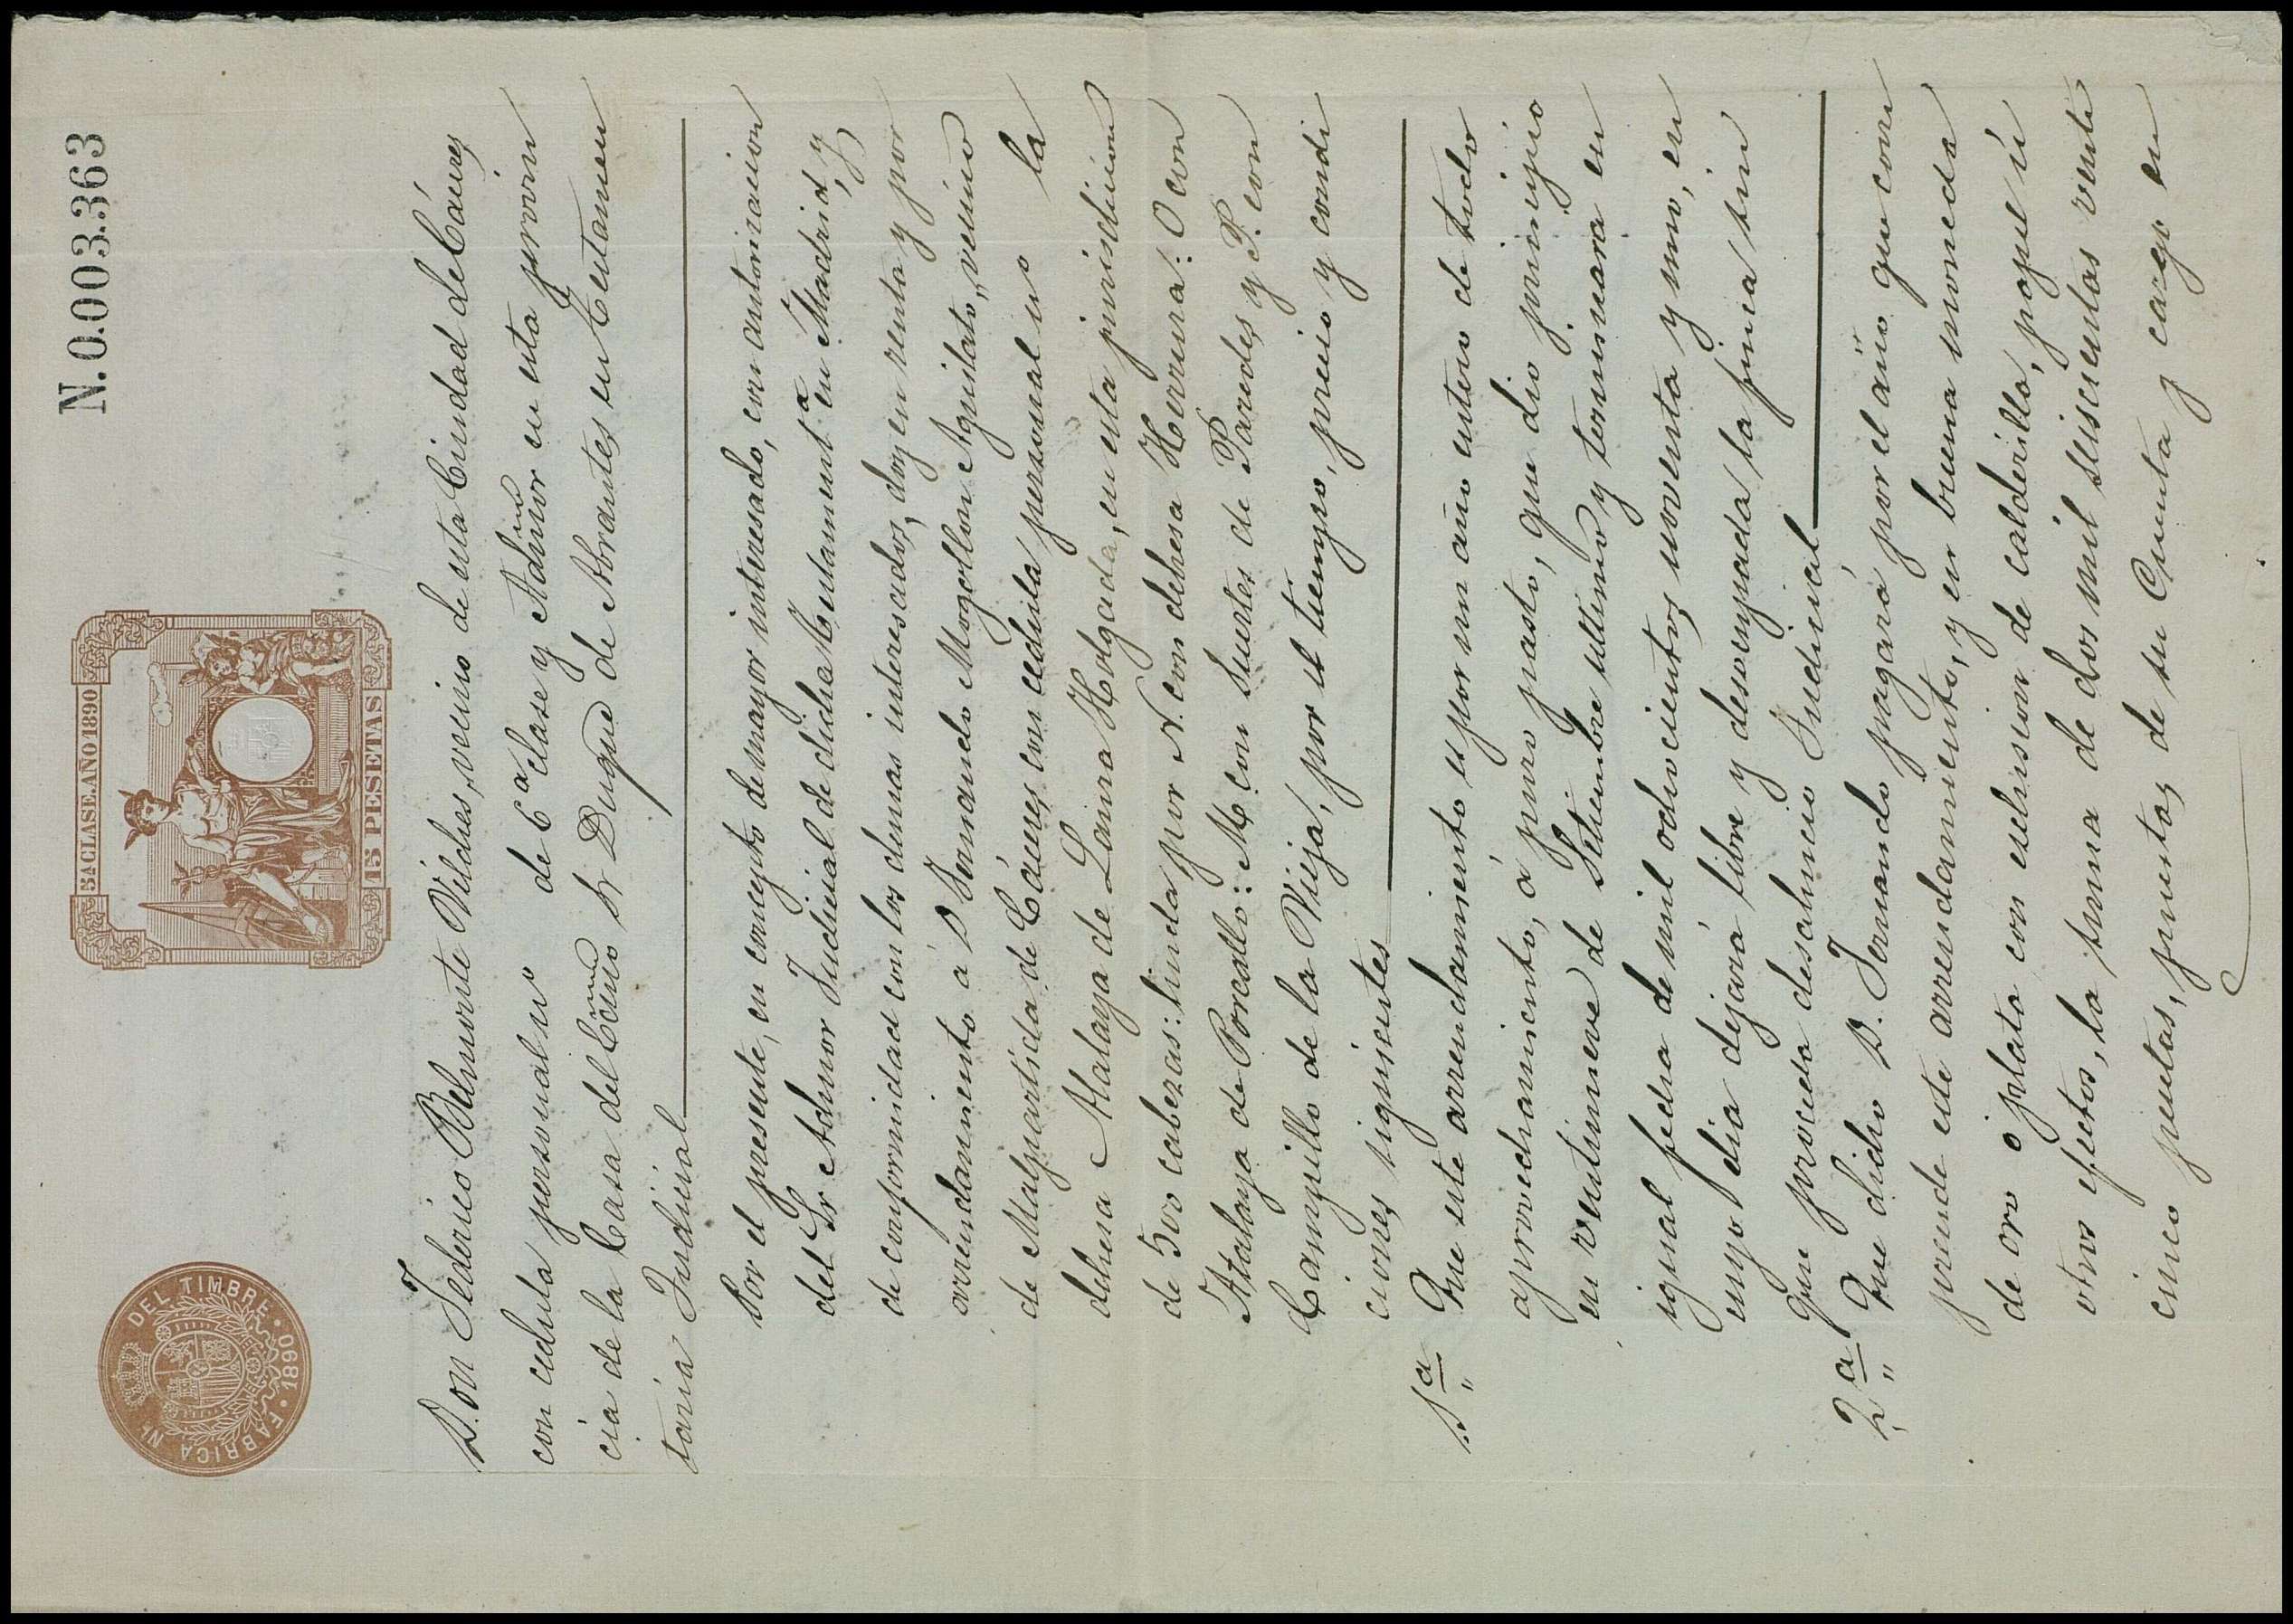 N.0.003.363
5A CLASE.AÑO 1890
15 PESETAS
FABRICA NL DEL TIMBRE · 1890 ·
D. on Federico Belmonte Vilches, vecino de esta Ciudad de Cáceres
con cedula personal nº de 6ª clase y Admor en esta provin
cia de la Casa del Excmo Sr Duque de Abrantes en Testamen
taria Judicial
Por el presente, en concepto de mayor interesado, con autorizacion
del Sr Admor Judicial de dicha Testamentª en Madrid, y
de conformidad con los demas interesados, doy en renta y por
arrendamiento á D Fernando Mogollon Aguilato, vecino
de Malpartida de Cáceres con cedula personal nº la
dehesa Atalaya de Loma Holgada, en esta jurisdiccion
de 500 cabezas: linda por N. con dehesa Herrera: O con
Atalaya de Porcallo: M con Suertes de Paredes y P. con
Campillo de la Vieja, por el tiempo, precio y condi
ciones siguientes
1ª Que este arrendamiento es por un año entero de todo
aprovechamiento, á puro pasto, que dio principio
en veintinueve de Setiembre ultimo y terminara en
igual fecha de mil ochocientos noventa y uno, en
cuyo dia dejará libre y desocupada la finca sin
que proceda desahucio Judicial
2ª Que dicho D. Fernando pagará por el año que com
prende este arrendamiento, y en buena moneda
de oro ó plata con exclusion de calderilla, papel ú
otros efectos, la suma de dos mil seiscientas veinte
cinco pesetas, puestas de su Cuenta y cargo en